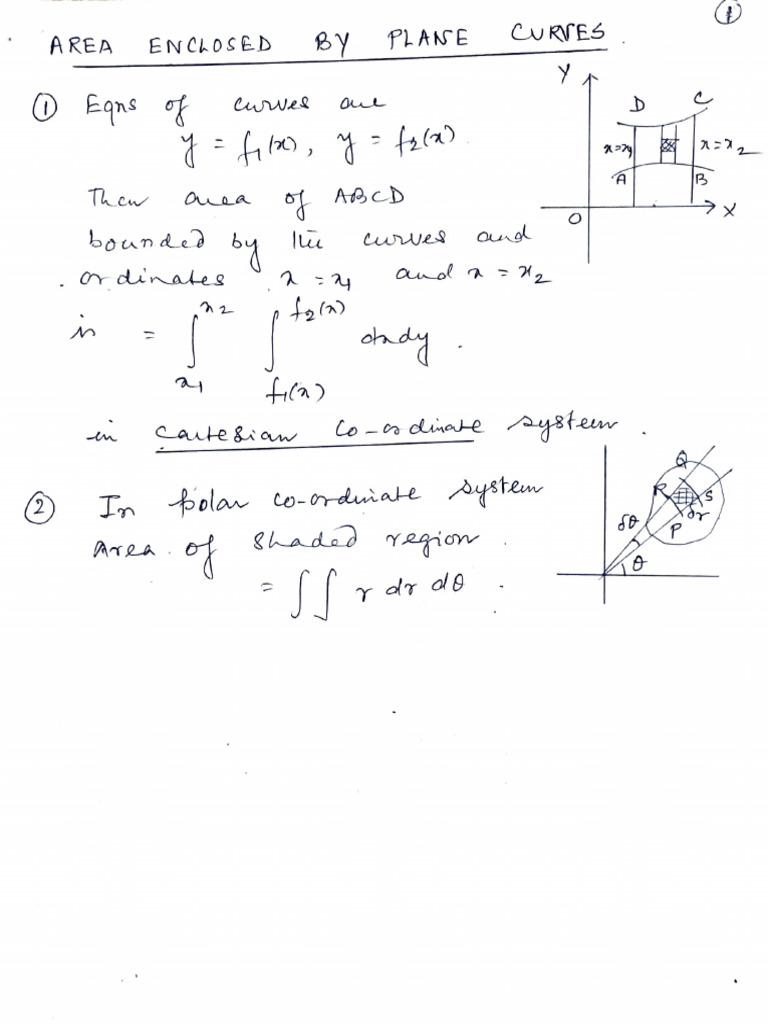 1
AREA ENCLOSED BY PLANE CURVES.
① Eqns of curves are
y = f₁(x), y = f₂(x)
Then area of ABCD
bounded by the curves and
ordinates x = x₁ and x = x₂
is = ∫_{x₁}^{x₂} ∫_{f₁(x)}^{f₂(x)} dxdy.
in Cartesian Co-ordinate system.
Y
D C
x=x₁ x=x₂
A B
O X
② In polar co-ordinate system
Area of shaded region.
= ∫∫ r dr dθ.
Q
R S
δθ P δr
θ